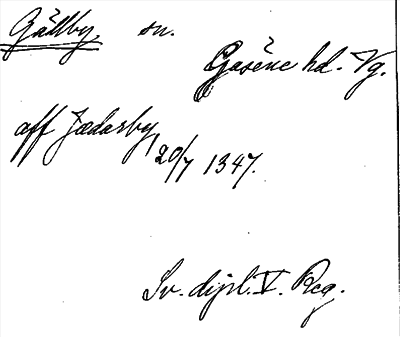 Gällby, sn.
Gäsene hd. Vg.
aff Jædasby
20/7 1347.
Sv. dipl. V. Reg.